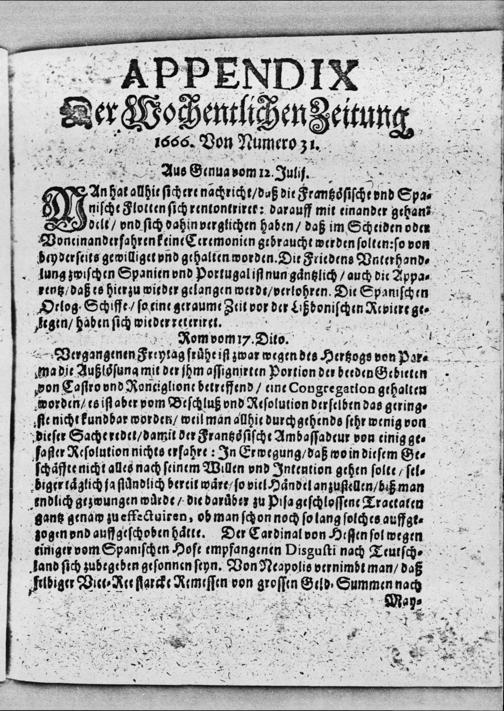 APPENDIX
Der Wochentlichen Zeitung
1666. Von Numero 31.
Aus Genua vom 12. Julij.
MAn hat allhie sichere nachricht/daß die Frantzösische vnd Spa-
nische Flotten sich rencontriret: darauff mit einander gehan-
delt/ vnd sich dahin verglichen haben/ daß im Scheiden oder
Voneinanderfahren keine Ceremonien gebraucht werden solten: so von
beyderseits gewilliget vnd gehalten worden. Die Friedens Vnterhand-
lung zwischen Spanien vnd Portugal ist nun gäntzlich/ auch die Appa-
rentz/ daß es hierzu wieder gelangen werde/verlohren. Die Spanischen
Orlog-Schiffe/ so eine geraume Zeit vor der Lißbonischen Reviere ge-
legen/ haben sich wieder reteriret.
Rom vom 17. Dito.
Vergangenen Freytag frühe ist zwar wegen des Hertzogs von Par-
ma die Außlösung mit der jhm assignirten Portion der beeden Gebieten
von Castro vnd Ronciglione betreffend/ eine Congregation gehalten
worden/ es ist aber vom Beschluß vnd Resolution derselben das gering-
ste nicht kundbar worden/ weil man allhie durchgehends sehr wenig von
dieser Sache redet/damit der Frantzösische Ambassadeur von einig ge-
faster Resolution nichts erfahre: In Erwegung/daß wo in diesem Ge-
schäffte nicht alles nach seinem Willen vnd Intention gehen solte/ sel-
biger täglich ja stündlich bereit wäre/ so viel Händel anzustellen/biß man
endlich gezwungen würde/ die darüber zu Pisa geschlossene Tractaten
gantz genaw zu effectuiren, ob man schon noch so lang solches auffge-
zogen vnd auffgeschoben hätte. Der Cardinal von Hessen sol wegen
einiger vom Spanischen Hofe empfangenen Disgusti nach Teutsch-
land sich zubegeben gesonnen seyn. Von Neapolis vernimbt man/ daß
selbiger Vice-Ree starcke Remessen von grossen Geld-Summen nach
May-